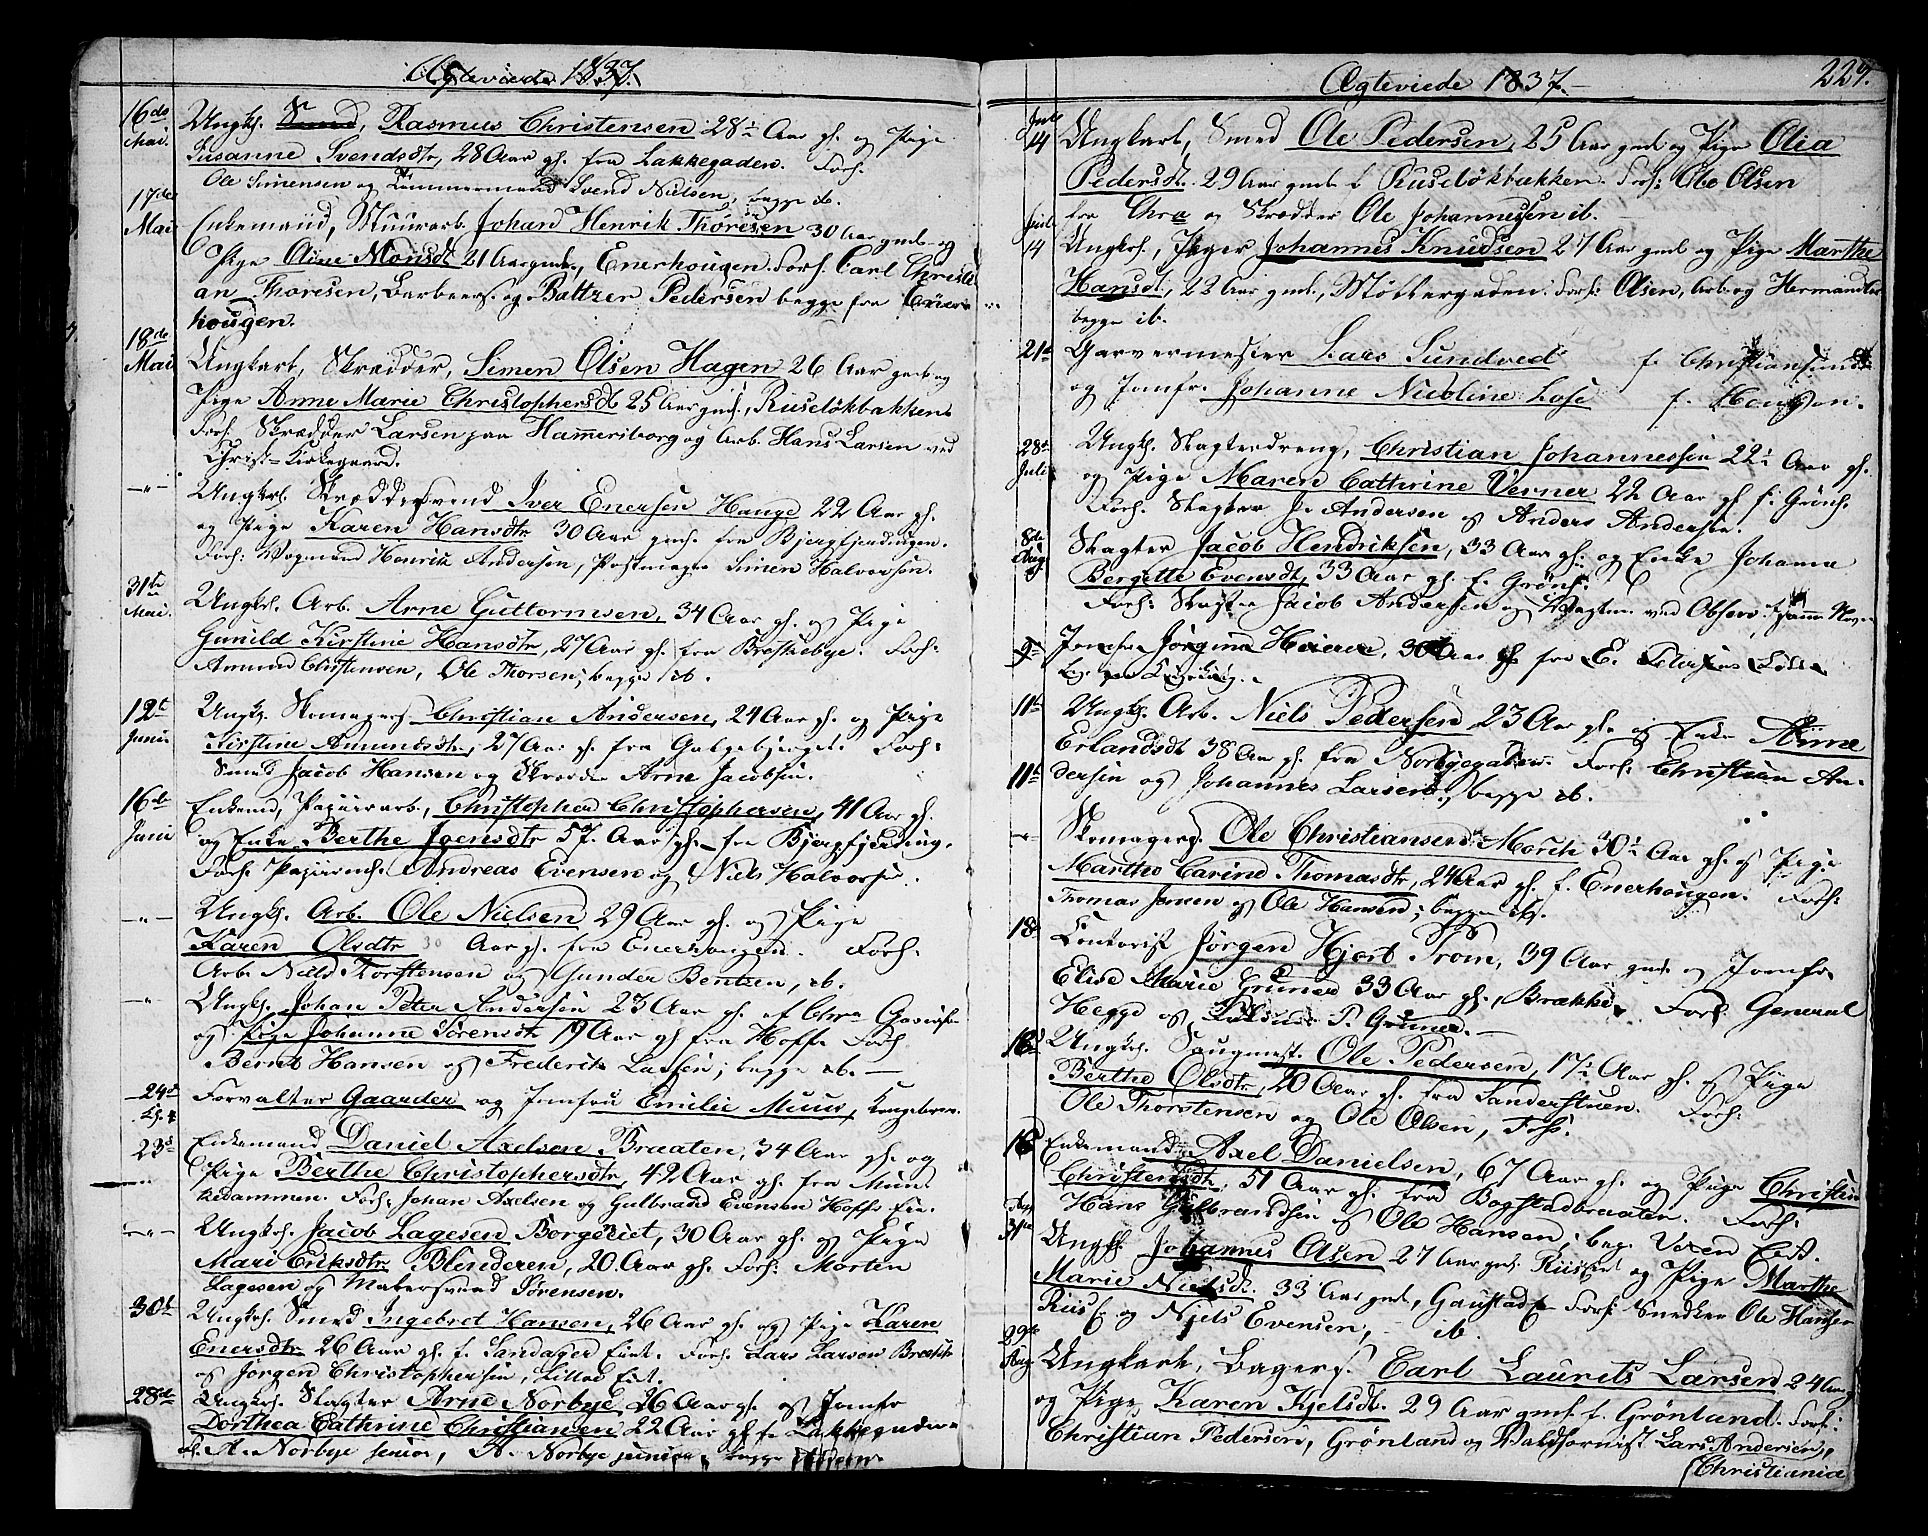 Ægteviede 1837.
16de Mai. Ungk. Smed, Rasmus Christensen 28½ Aar gl. og Pige
Susanne Svendsdtr, 28 Aar gl. fra Lakkegaden. Forl:
Ole Simensen og Tømmermand Svend Nielsen, begge ib.
17de Mai Enkemand, Muurarb. Johan Henrik Thoresen 30 Aar gml. og
Pige Anne Monsdt 21 Aar gml., Enerhougen. Forl. Carl Christi-
an Thoresen, Barbeers. og Baltzer Pedersen begge fra Ener-
hougen.
18de Mai Ungkarl, Skrædder, Simen Olsen Hagen 26 Aar gml. og
Pige Anne Marie Christophersdt 25 Aar gml., Ruseløkbakken
Forl. Skrædder Larsen paa Hammersborg og Arb. Hans Larsen ved
Christ-Kirkegaard.
—"— Ungkrl. Skræddersvend Iver Enersen Hauge 22 Aar gl.
og Pige Karen Hansdtr 30 Aar gml. fra Bjergfjerdingen.
Forl: Vognmand Henrik Andersen, Simen Halvorsen.
31te Mai. Ungk. Arb. Arne Guttormsen, 34 Aar gl. og Pige
Gunild Kirstine Hansdtr, 27 Aar gl. fra Briskebye. Forl:
Amund Christensen, Ole Thorsen, begge ib.
12t Juni Ungk. Skomagers Christian Andersen, 24 Aar gl. og Pige
Kirstine Amundsdtr, 27 Aar gl. fra Galgebjerget. Forl:
Smed Jacob Hansen og Skrædder Arne Jacobsen.
16de Juni Enkemd, Papiirarb., Christopher Christophersen, 41 Aar gl.
og Enke Berthe Joensdtr 57 Aar gl. fra Bjergfjerding.
Forl: Andreas Evensen og Niels Halvorsen.
—"— Ungk. Arb. Ole Nielsen 29 Aar gl. og Pige
Karen Olsdtr 30 Aar gl. fra Enerhougen. Forl:
Arb. Niels Torstensen og Gunder Bentzen, ib.
—"— Ungk. Johan Peter Andersen 23 Aar gl. af Chra
og Pige Johanne Sørensdtr 19 Aar gl fra Hoffs Forl:
Bernt Hansen og Frederik Larsen; begge ib. —
24de Forvalter Gaarder og Jomfru Emilie Muus, Kongsberg.
23d Enkemand Daniel Axelsen Braaten, 34 Aar gl. og
—"— Pige Berthe Christophersdtr, 42 Aar gl. fra Mun-
kedammen. Forl: Johan Axelsen og Gulbrand Evensen Hoffs Eie.
—"— Ungk. Jacob Lagesen Borgeriet, 30 Aar gl. og Pige
Mari Eriksdtr Blinderen, 20 Aar gl. Forl: Morten
Lagesen og Malersvend Sørensen.
30t Ungk. Smed Ingebret Hansen, 26 Aar gl. og Pige Karen
Enersdtr 26 Aar gl. f. Sandager Eiet. Forl: Lars Larsen
og Jørgen Christophersen, Lilleb Eiet.
28de Ungk. Slagter Arne Norbye, 26 Aar gl. og Jomfr
Dorthea Cathrine Christiansen 22 Aar gl. f. Lakkegaden
A. Norbye senior, A. Norbye junior, begge
Ægteviede 1837.
229.
Juli 14 Ungkarl, Smed Ole Pedersen, 25 Aar gml og Pige Olia
Pedersdt. 29 Aar gml. f. Ruseløkbakken. Forl: Ole Olsen
fra Chra og Skrædder Ole Johannessen ib.
Juli 14 Ungkrl., Johannes Knudsen 27 Aar gml og Pige Marthe
Hansdt, 22 Aar gml., Møllergaden. Forl: Olsen, Arb. og
begge ib.
21d Garvermester Lars Sundved f. Christiansund
og Jomfr. Johanne Nicoline Lose f.
28de Juli Ungk. Slagterdreng, Christian Johannessen 22½ Aar gl.
og Pige Maren Cathrine Verner 22 Aar gl f. Grønl.
Forl. Slagter P. Andersen og Anders Andersen.
8de Aug Slagter Jacob Hendriksen, 33 Aar gl. og Enke Johanna
Bergitte Evensdt, 33 Aar gl. f. Grønl.
Forl: Slagter Jacob Andersen og Vægter ved Observ.
9. Jomfr. Jørgine Heieren, 30 Aar gl fra
11te Ungk. Arb. Niels Pedersen 23 Aar gl. og Enke Anne
Erlandsdt 38 Aar gl. fra Norbygaden. Forl: Christian An-
11t dersen og Johannes Larsen, begge ib.
—"— Skomagers. Ole Christiansen Moreli 30½ Aar gl. og Pige
Marthe Carine Thomasdtr, 24 Aar gl. f. Enerhougen. Forl:
Thomas Jensen og Ole Hansen; begge ib.
18 Contorist Jørgen Hjort Trom, 39 Aar gml. og Jomfr
Elise Marie Gruner 33 Aar gl., Brække. Forl: General
Hegge og P. Gruner. —
16d Ungk. Saugmest. Ole Pedersen, 17½ Aar gl. og Pige
Berthe Olsdtr, 20 Aar gl. fra Sanderstuen. Forl:
Ole Thorstensen og Ole Olsen, Foss.
16 Enkemand Axel Danielsen, 67 Aar gl. og Pige Christine
Christensdt, 51 Aar gl. fra Bogstadbraaten. Forl:
Hans Gulbrandsen og Ole Hansen; beg. Voxen Eiet.
Ungk. Johannes Olsen 27 Aar gml. Riis og Pige Marthe
Marie Nielsdt. 33 Aar gml., Gaustad Forl: Snedker Ole Hansen
Riis og Niels Evensen, ib.
29de Aug. Ungkarl, Bagers. Carl Laurits Larsen 24 Aar
og Pige Karen Kjelsdt. 29 Aar gml. f. Grønland. Forl:
Christian Pedersen, Grønland og Valdhornist Lars Andersen,
Christiania